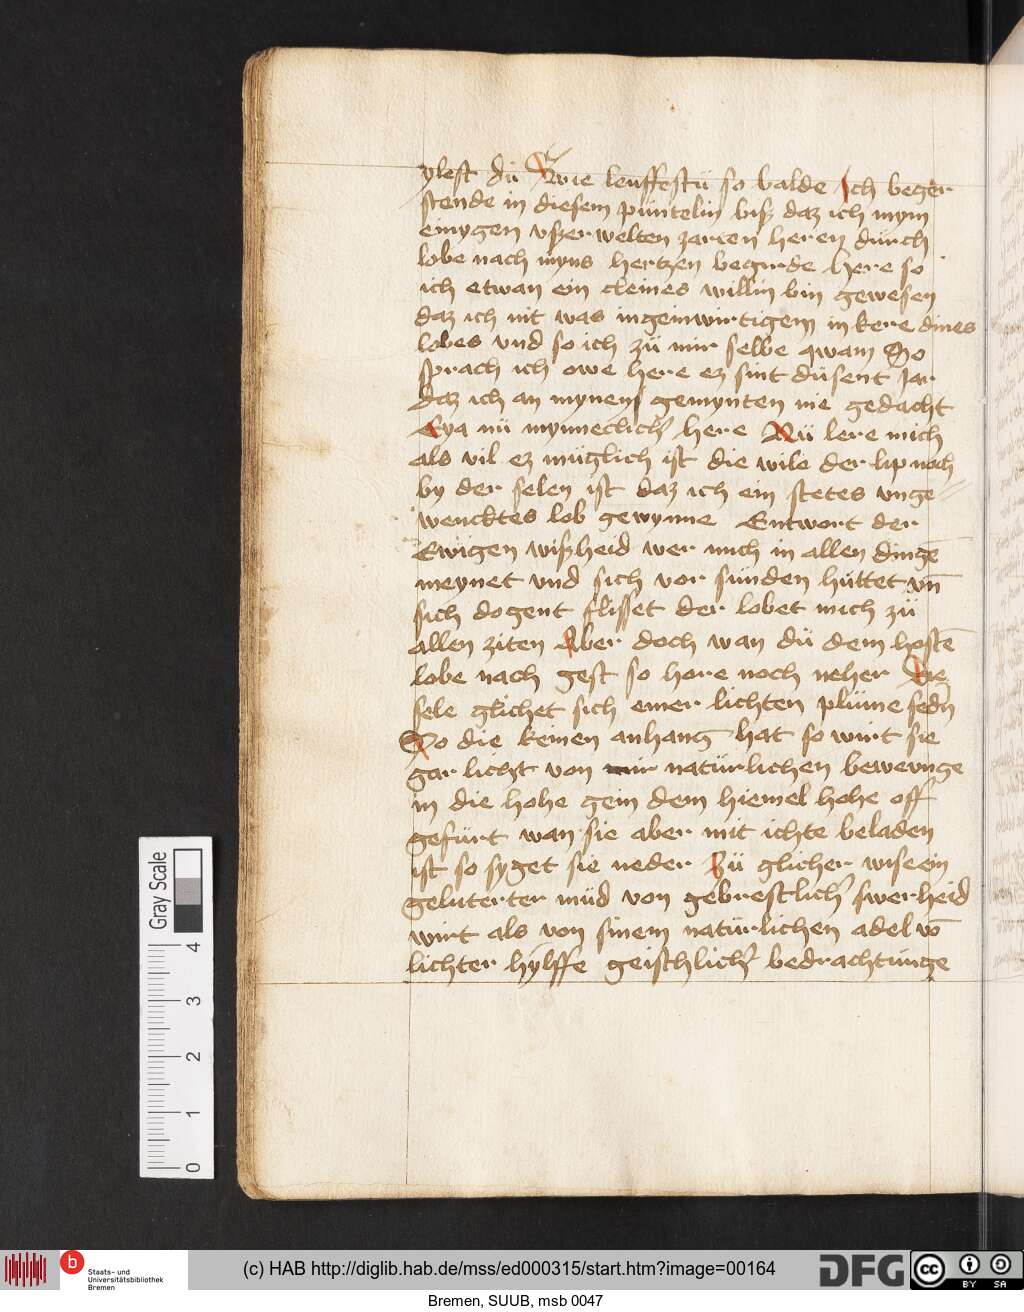 ylest du Swie leuffestu so balde Ich beger
stende in diesem püntelin bisz daz ich mym
eynygen vszerwelten zarten heren durch
lobe nach myns hertzen begirde here so
ich etwan ein cleines willin bin gewesen
daz ich nit was ingeinwirtigem inkere dines
lobes vnd so ich zü mir selbe qwam So
sprach ich owe here ez sint düsent Jar
daz ich an mynen gemynten nie gedacht
Eya nü mynneclich' here Nü lere mich
als vil ez müglich ist die wile der lip noch
by der selen ist daz ich ein stetes vnge=
wencktes lob gewynne Entwort der
Ewigen wiszheid wer mich in allen dingē
meynet vnd sich vor sünden hüttet vn̄
sich dogent flisset der lobet mich zü
allen ziten Aber doch wan dü dem hostē
lobe nach gest so hore noch neher Die
sele glichet sich einer lichten plüme fedn
So die keinen anhang hat so wirt sie
gar licht von natürlichen bewevnge
in die hohe gein dem hiemel hohe off
gefürt wan sie aber mit ichte beladen
ist so syget sie neder Zü glicher wise ein
geluterter müd von gebrestlich' swerheid
wirt als von sinem natürlichen adel vō
lichter hÿlffe geischlich' bedrachtünge
Gray Scale
0 1 2 3 4
b
Staats- und
Universitätsbibliothek
Bremen
(c) HAB http://diglib.hab.de/mss/ed000315/start.htm?image=00164
DFG
cc BY SA
Bremen, SUUB, msb 0047